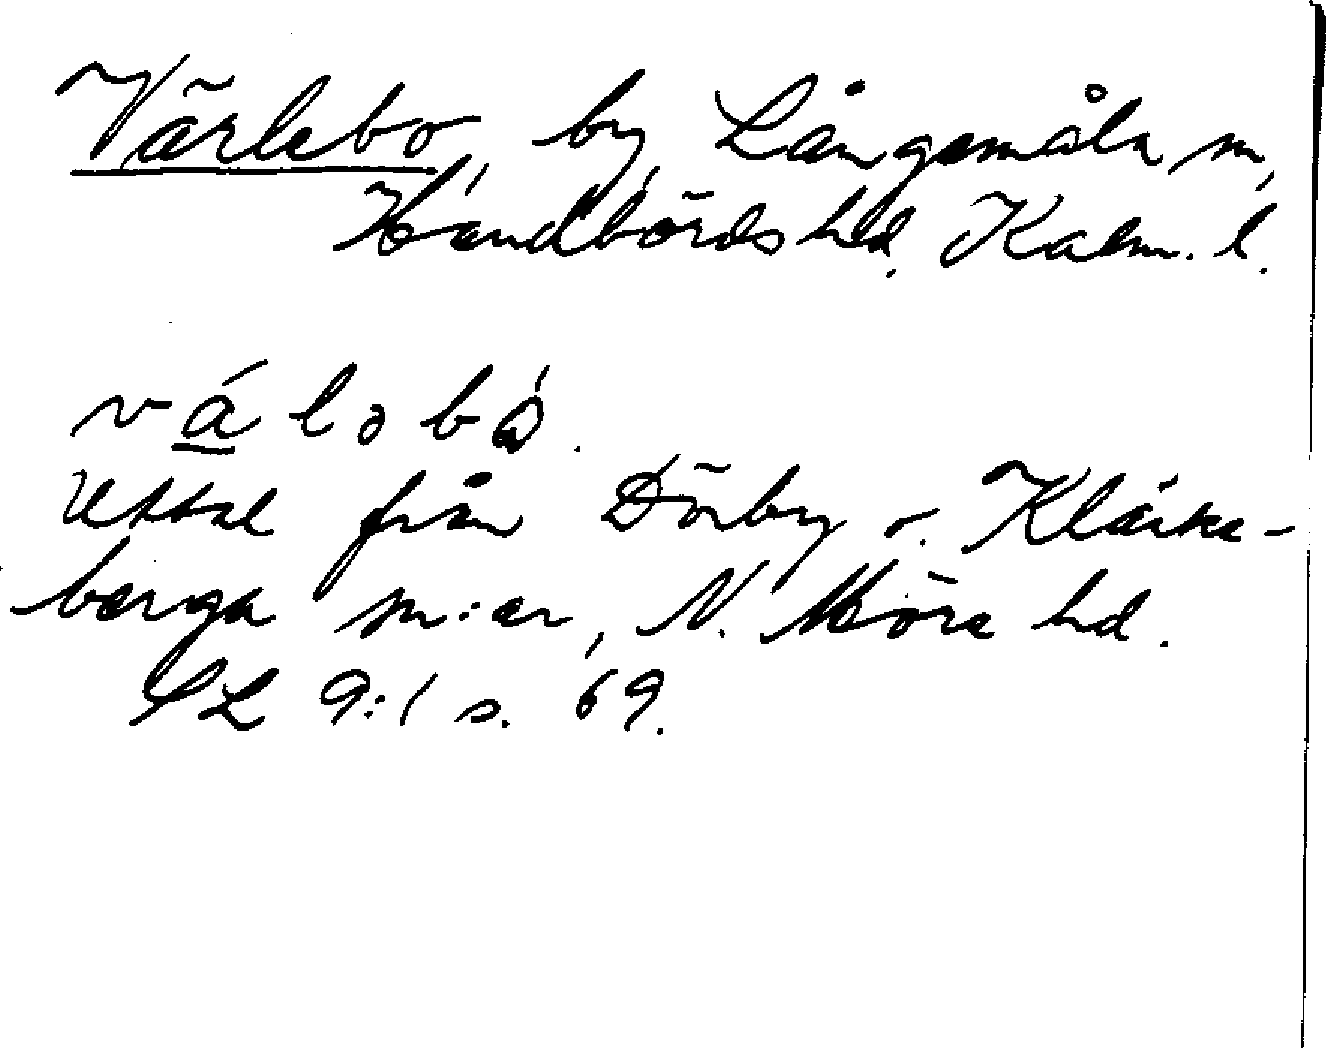 Värlebo, by, Långemåla sn,
Handbörds hd. Kalm. l.
Uttal från Dörby o. Kläcke-
berga sn:ar, N. Möre hd.
SL 9:1 s. 69.